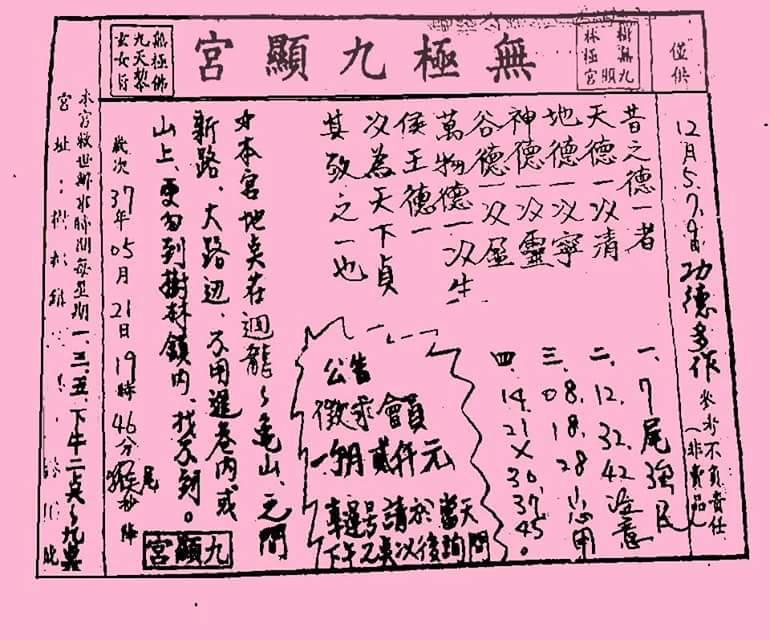 無極九顯宮
樹無九
林極顯
宮
無極佛
九天黎
玄女行
僅供
參考不負責任
(非賣品)
12月5.7.9日功德多作
昔之德一者
天德一以清
地德一以寧
神德一以靈
谷德一以盈
萬物德一以生
侯王德一
以為天下貞
其致之一也
一、7尾強民
二、12.32.42注意
三、08.18.28小心用
四、14.21×30.37.45。
公告
徵求會員
一個月貳仟元
幸運号請於當天
下午2奌以後詢問
本宮地奌在迴龍~龜山、之間
新路、大路边、不用進巷內或
山上、更勿到樹林鎮內、找不到。
歲次37年05月21日19時46分
九顯宮
本宮救世辦事時間每星期一.三.五.下午二奌~九奌
宮址:樹林鎮